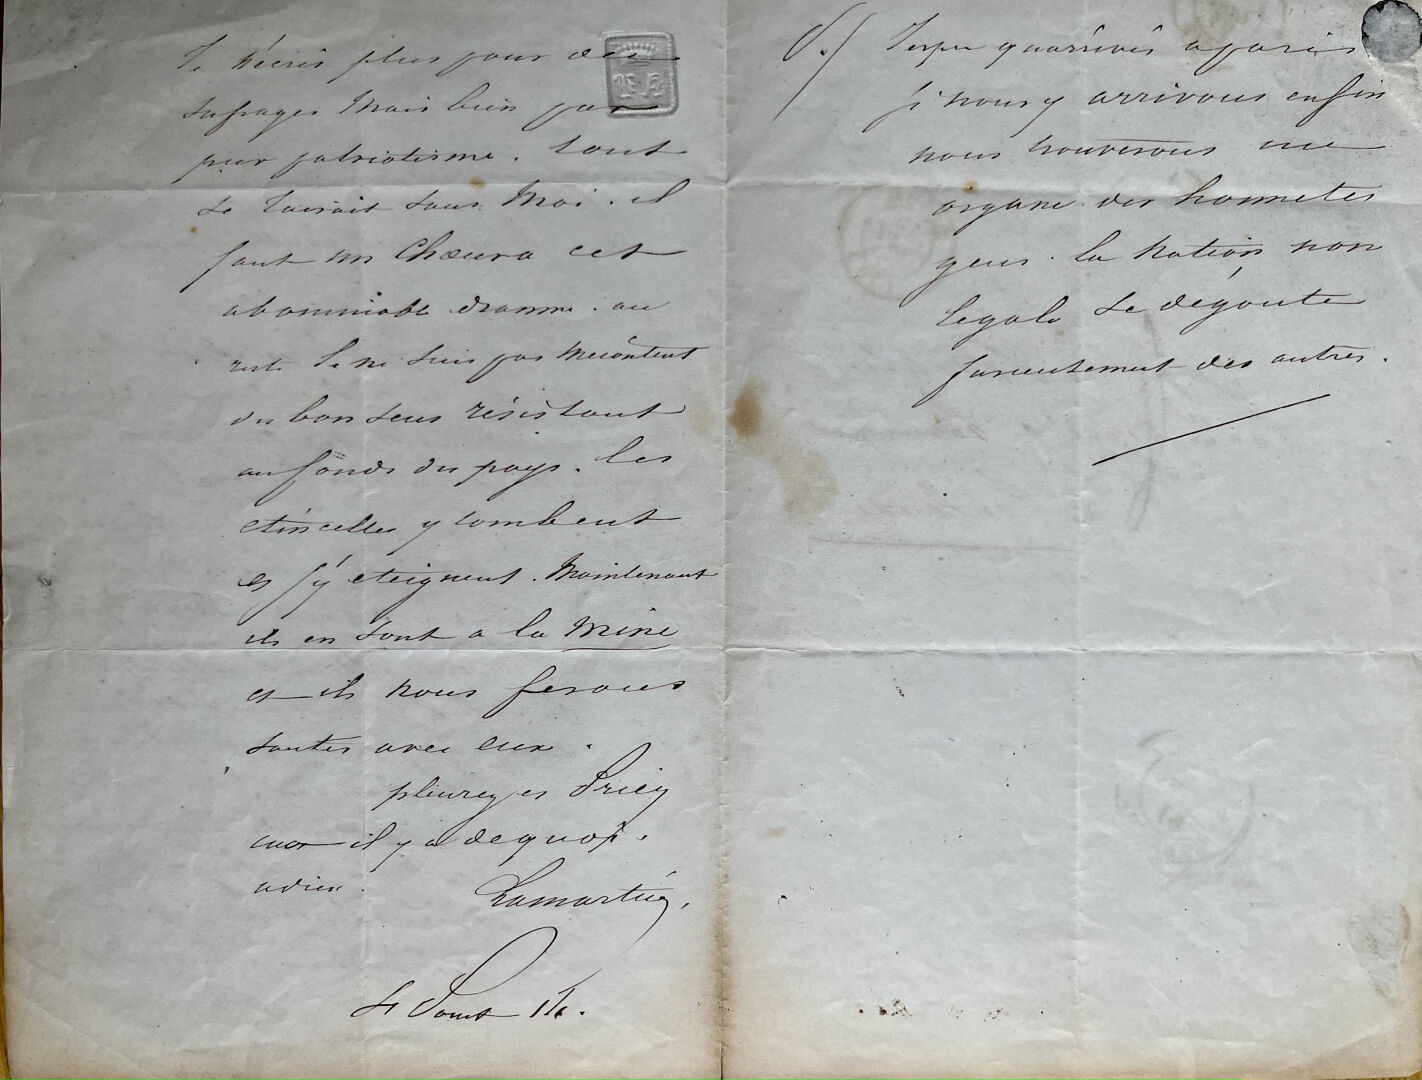 Je n'écris plus pour des
sufrages Mais bien par
pur patriotisme. tout
se tairait sans Moi. il
faut un Choeur a cet
abominable drame. au
reste Je ne suis pas mecontent
du bon sens résistant
au fonds du pays. les
etincelles y tombent
et s'y eteignent. Maintenant
ils en sont a la mine
et ils nous ferons
sauter avec eux.
pleurez et Priez
car il y a de quoi.
adieu.
Lamartine
St Point
J'espere qu'arrivés a paris
si nous y arrivons enfin
nous trouverons une
organe des honnetes
gens. la Nation non
legale se dégoute
furieusement des autres.